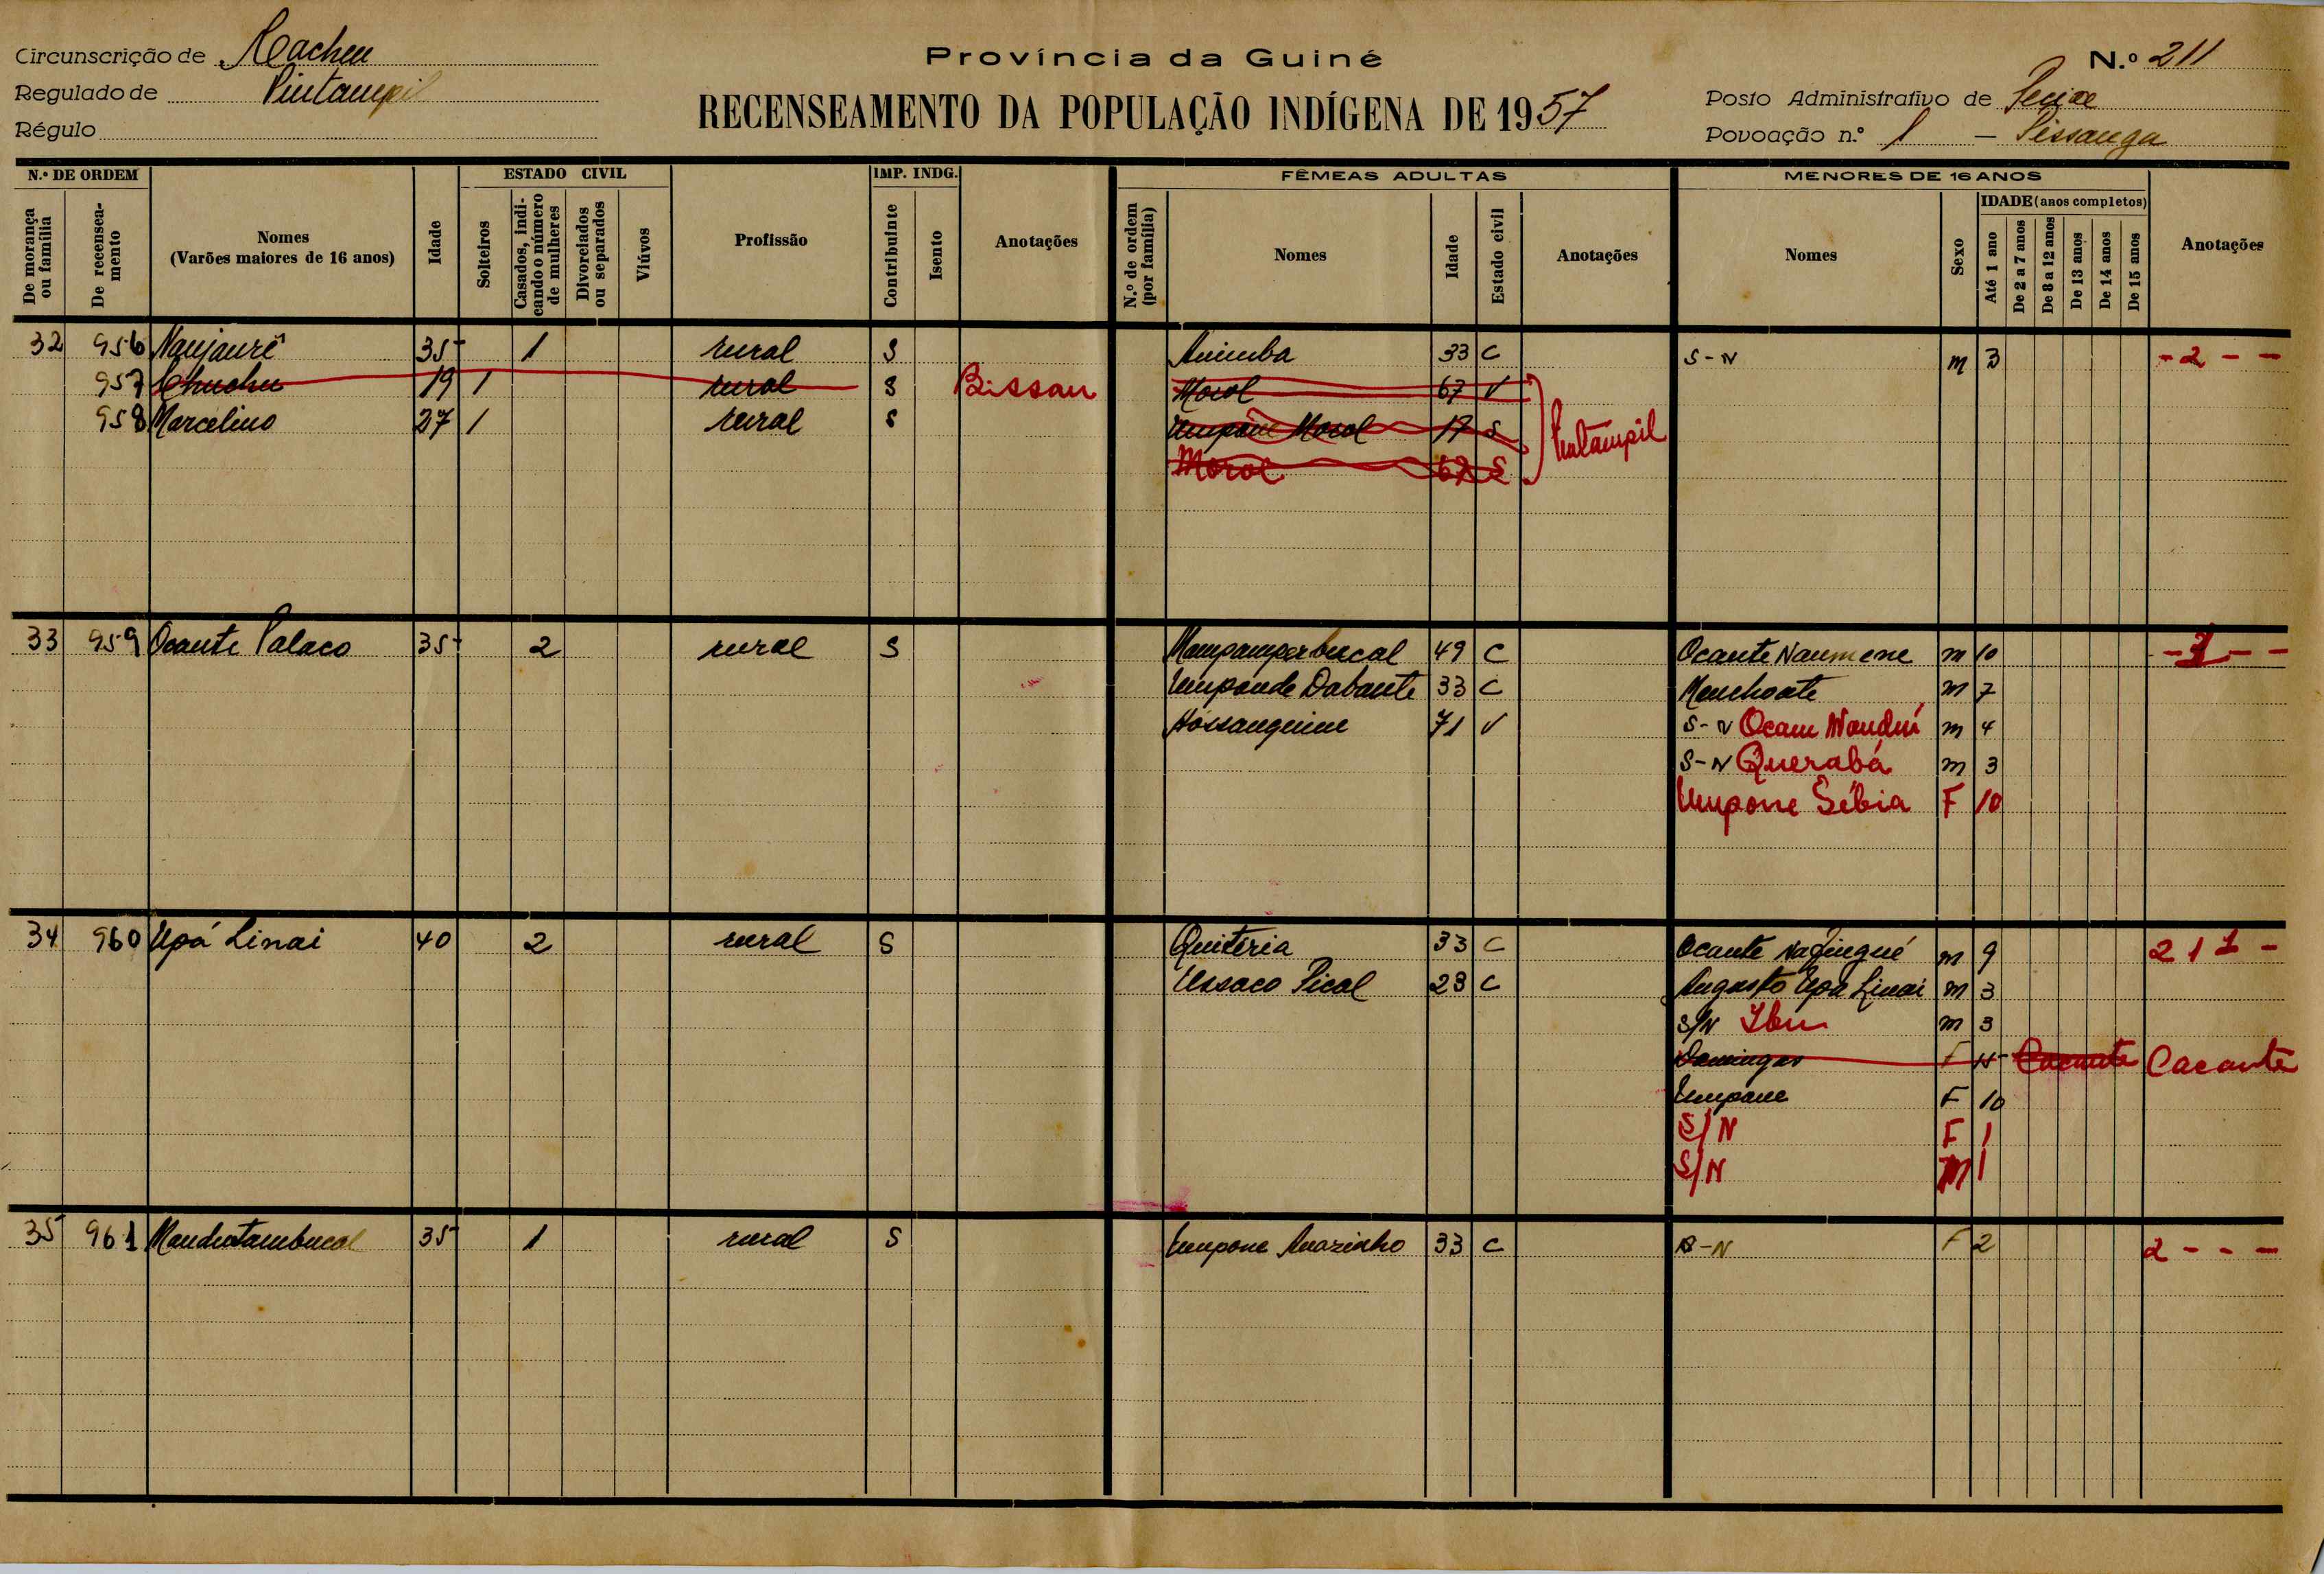 Circunscrição de Cacheu
Província da Guiné
N.º 211
Regulado de Pintampil
RECENSEAMENTO DA POPULAÇÃO INDÍGENA DE 1957
Posto Administrativo de
Régulo
Povoação n.º 1 — Pissanga
N.º DE ORDEM
ESTADO CIVIL
IMP. INDG.
FÊMEAS ADULTAS
MENORES DE 16 ANOS
De morança ou família
De recenseamento
Nomes (Varões maiores de 16 anos)
Idade
Solteiros
Casados, indicando o número de mulheres
Divorciados ou separados
Viúvos
Profissão
Contribuinte
Isento
Anotações
N.º de ordem (por família)
Nomes
Idade
Estado civil
Anotações
Nomes
Sexo
IDADE (anos completos)
Até 1 ano
De 2 a 7 anos
De 8 a 12 anos
De 13 anos
De 14 anos
De 15 anos
Anotações
32 956 Naujaurê 35 1 rural S 33 C S-N m 3 - 2 - -
957 Chuchu 19 1 rural S Bissau Morol 67 V
958 Marcelino 27 1 rural S Umpane Morol 17 S
Morol 67 S
33 959 Ocante Palaco 35 2 rural S Mampamperbucal 49 C Ocante Naumene m 10
Umpande Dabante 33 C m 7
71 V S-N Ocam m 4
S-N Querabá m 3
Umpone Sébia F 10
34 960 Upá Linai 40 2 rural S Quitéria 33 C Ocante m 9 2 1 1 -
Ussaco Pical 23 C Augusto Upá Linai m 3
S/N Ibu m 3
Domingas F Cacante Cacante
Umpane F 10
S/N F 1
S/N M 1
35 961 Mandutambucal 35 1 rural S Umpone 33 C S-N F 2 2 - - -